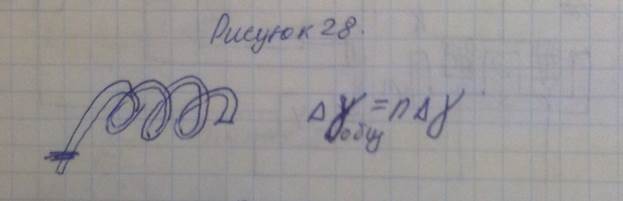 Рисунок 28.
Δγобщ = nΔγ